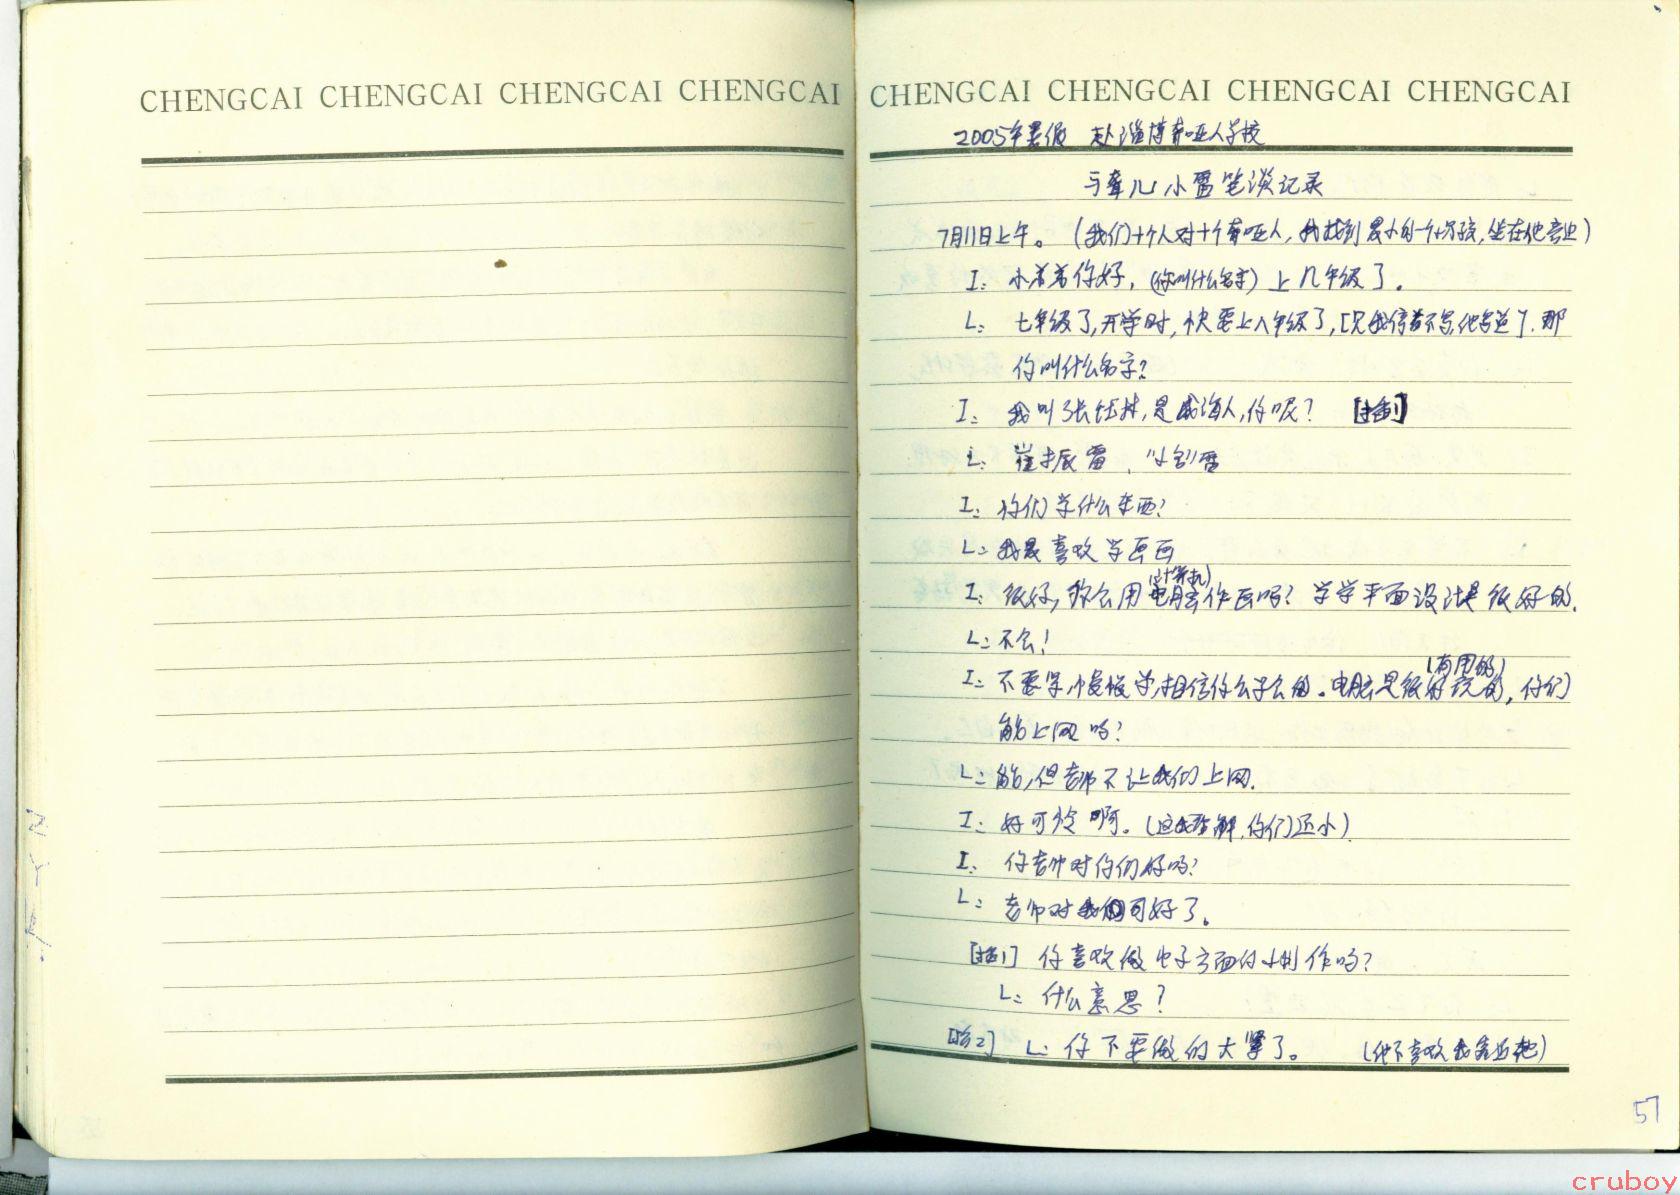 CHENGCAI CHENGCAI CHENGCAI CHENGCAI
CHENGCAI CHENGCAI CHENGCAI CHENGCAI
2005年暑假 赴淄博聋哑人学校
与聋儿小雷笔谈记录
7月11日上午。(我们十个人对十个聋哑人,我找到最小的一个小孩,坐在他旁边)
I: 小弟弟你好,(你叫什么名字)上几年级了.
L: 七年级了,开学时,快要上八年级了,[见我停着不写,他写道].那
你叫什么名字?
I: 我叫张,是威海人,你呢? [插1]
L: 崔振雷、小名雷
I: 你们学什么东西?
L: 我最喜欢学画画
I: 很好,你会用电脑(计算机)作画吗?学学平面设计是很好的.
L: 不会!
I: 不要紧,慢慢学,相信你会学会的.电脑是很好玩的(有用的),你们
能上网吗?
L: 能,但老师不让我们上网.
I: 好可怜啊。(这我理解,你们还小)
I: 你老师对你们好吗?
L: 老师对我们可好了。
[插1] 你喜欢做电子方面的小制作吗?
L: 什么意思?
[插2] L: 你不要做的太紧了。 (他不喜欢我靠近他)
57
cruboy